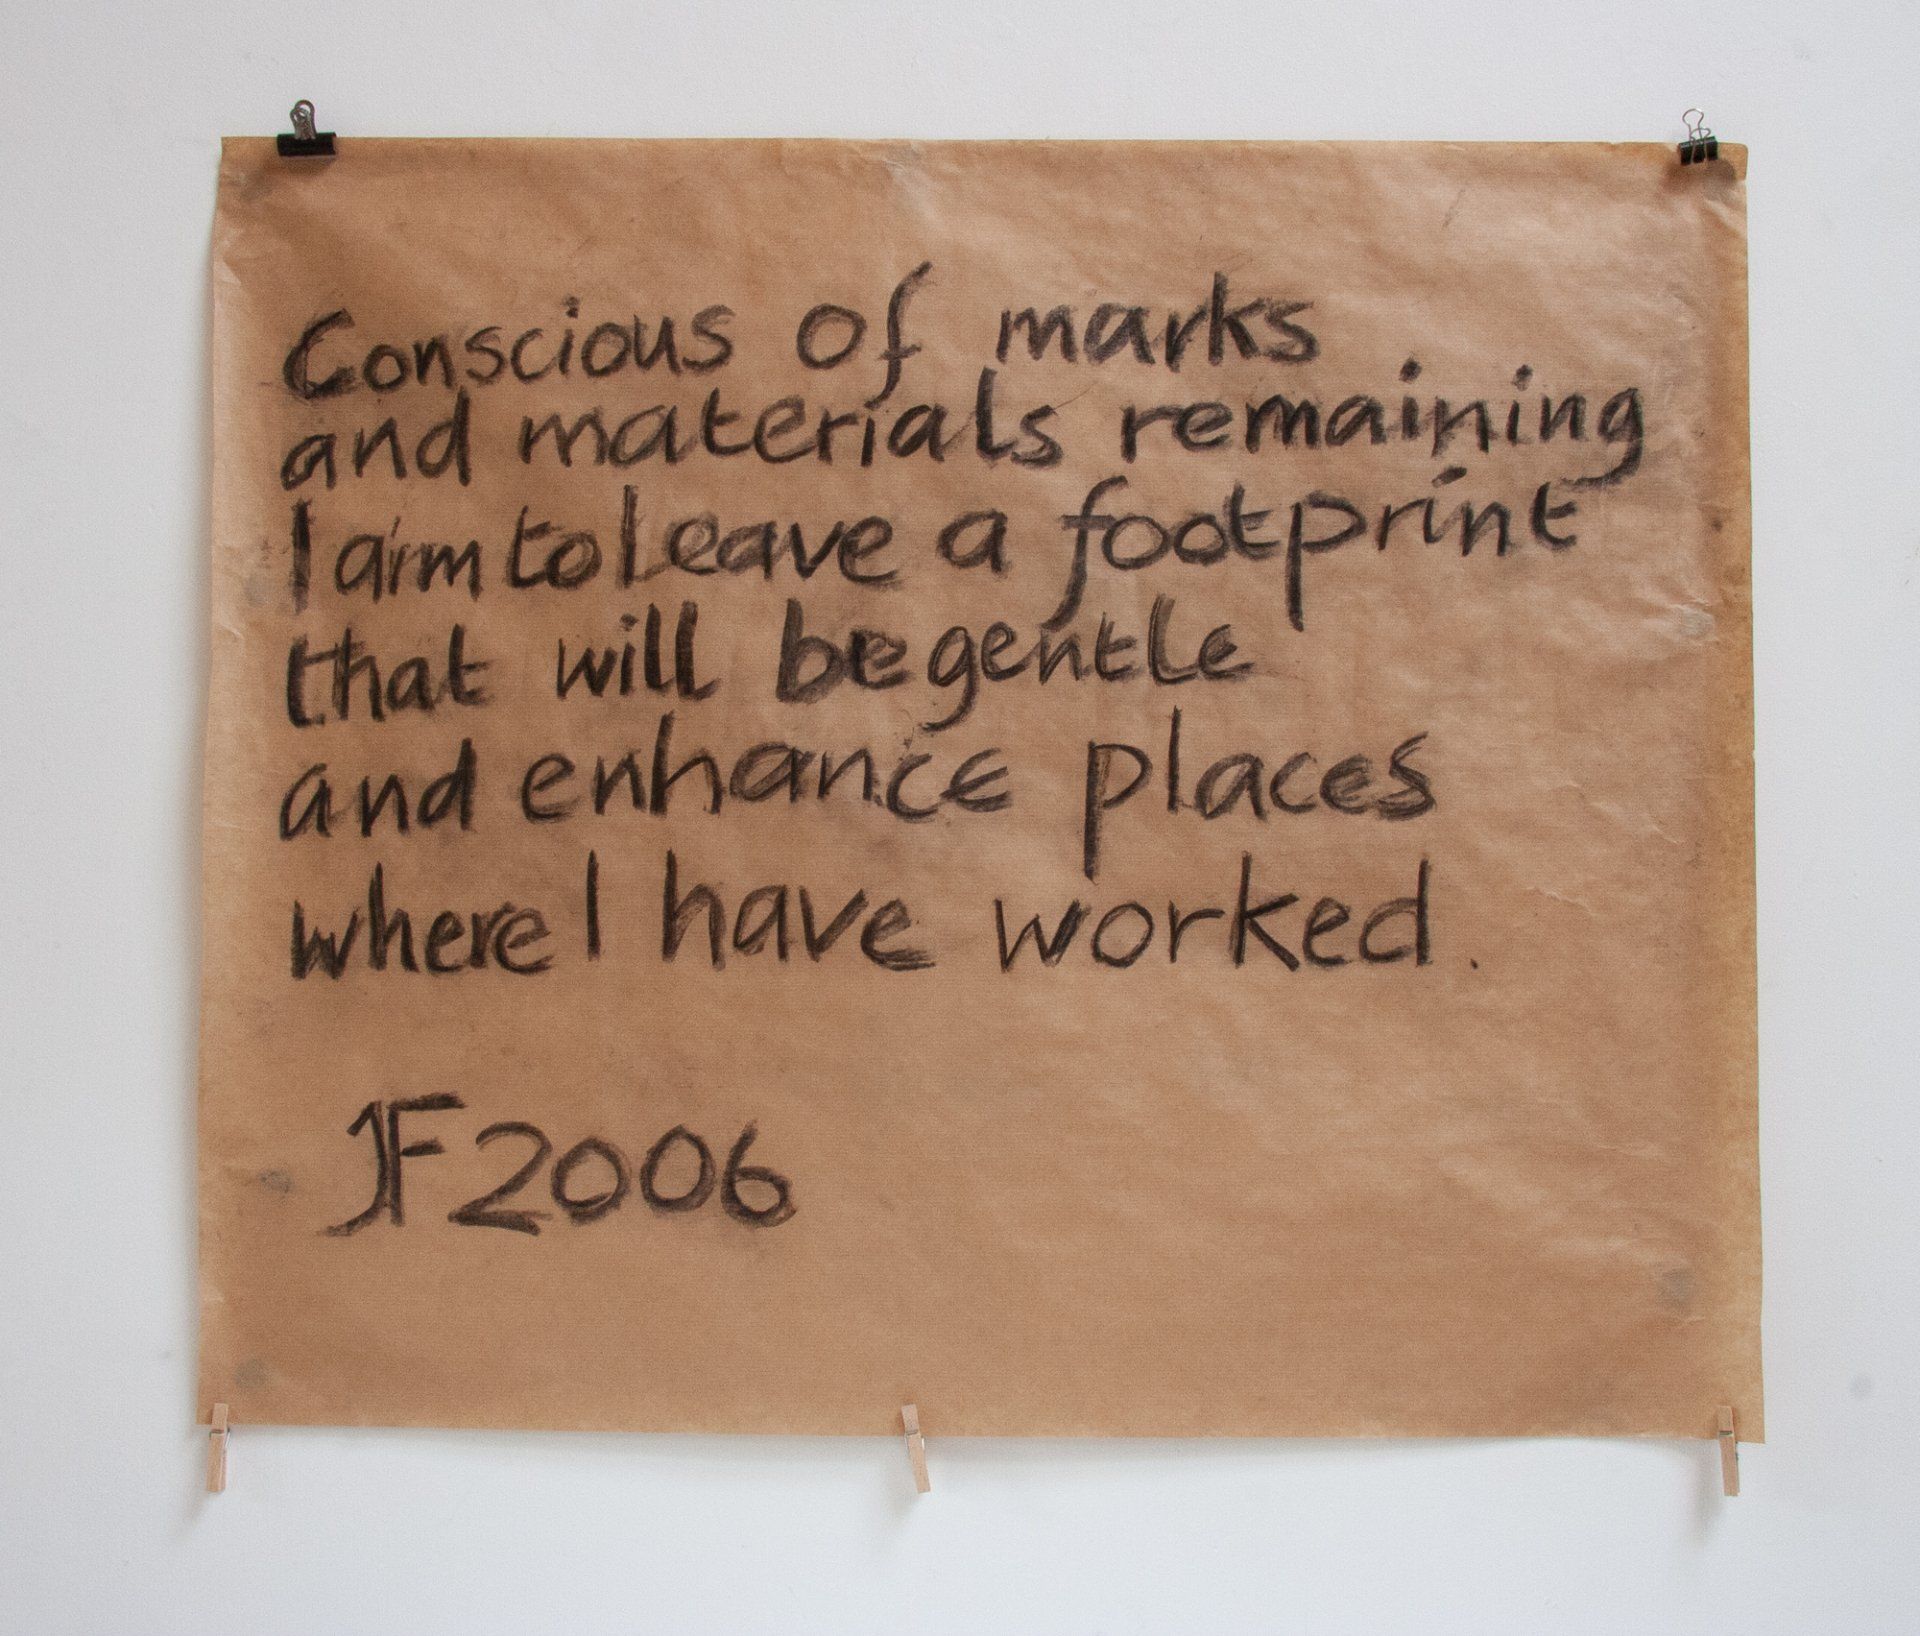 Conscious of marks
and materials remaining
I aim to leave a footprint
that will be gentle
and enhance places
where I have worked.
JF 2006